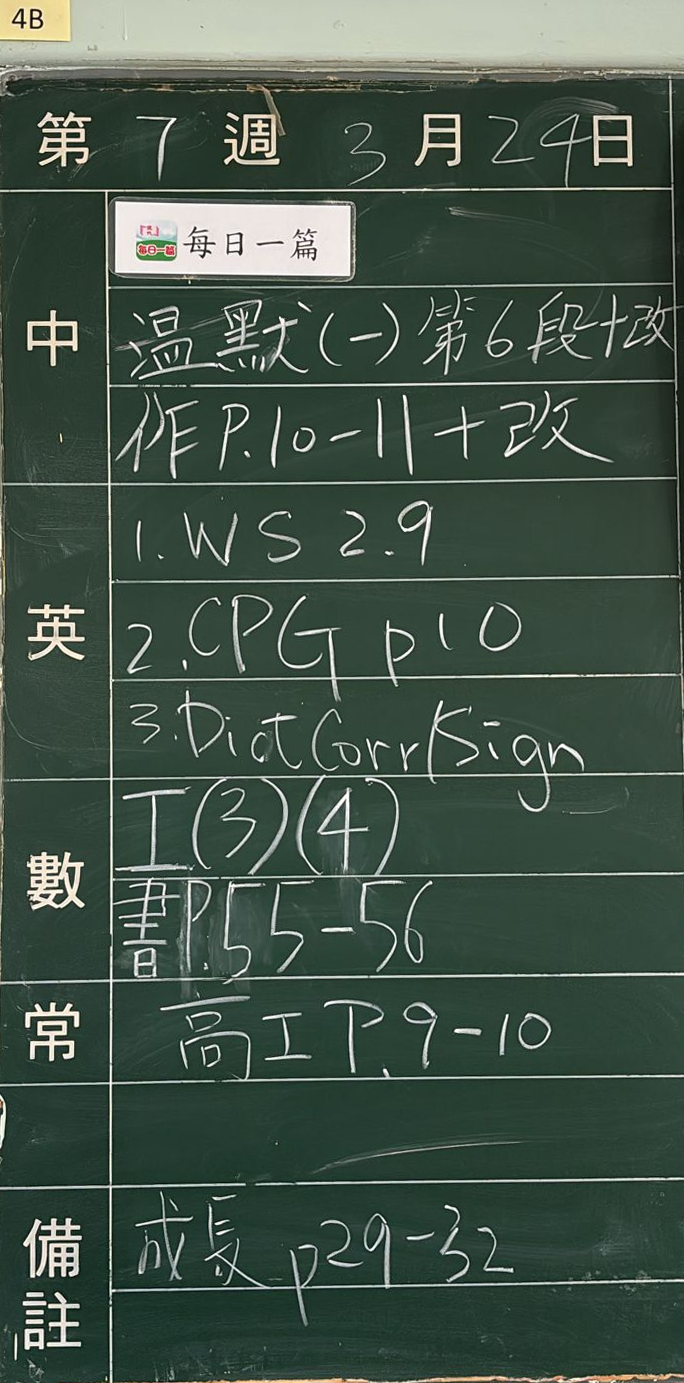 4B
第 7 週 3 月 24 日
中
每日一篇
溫默(一)第6段+改
作P.10-11+改
英
1. WS 2.9
2. CPG p10
3. Dict Corr/Sign
數
工(3)(4)
書P.55-56
常
高工 P.9-10
備註
成長 p29-32